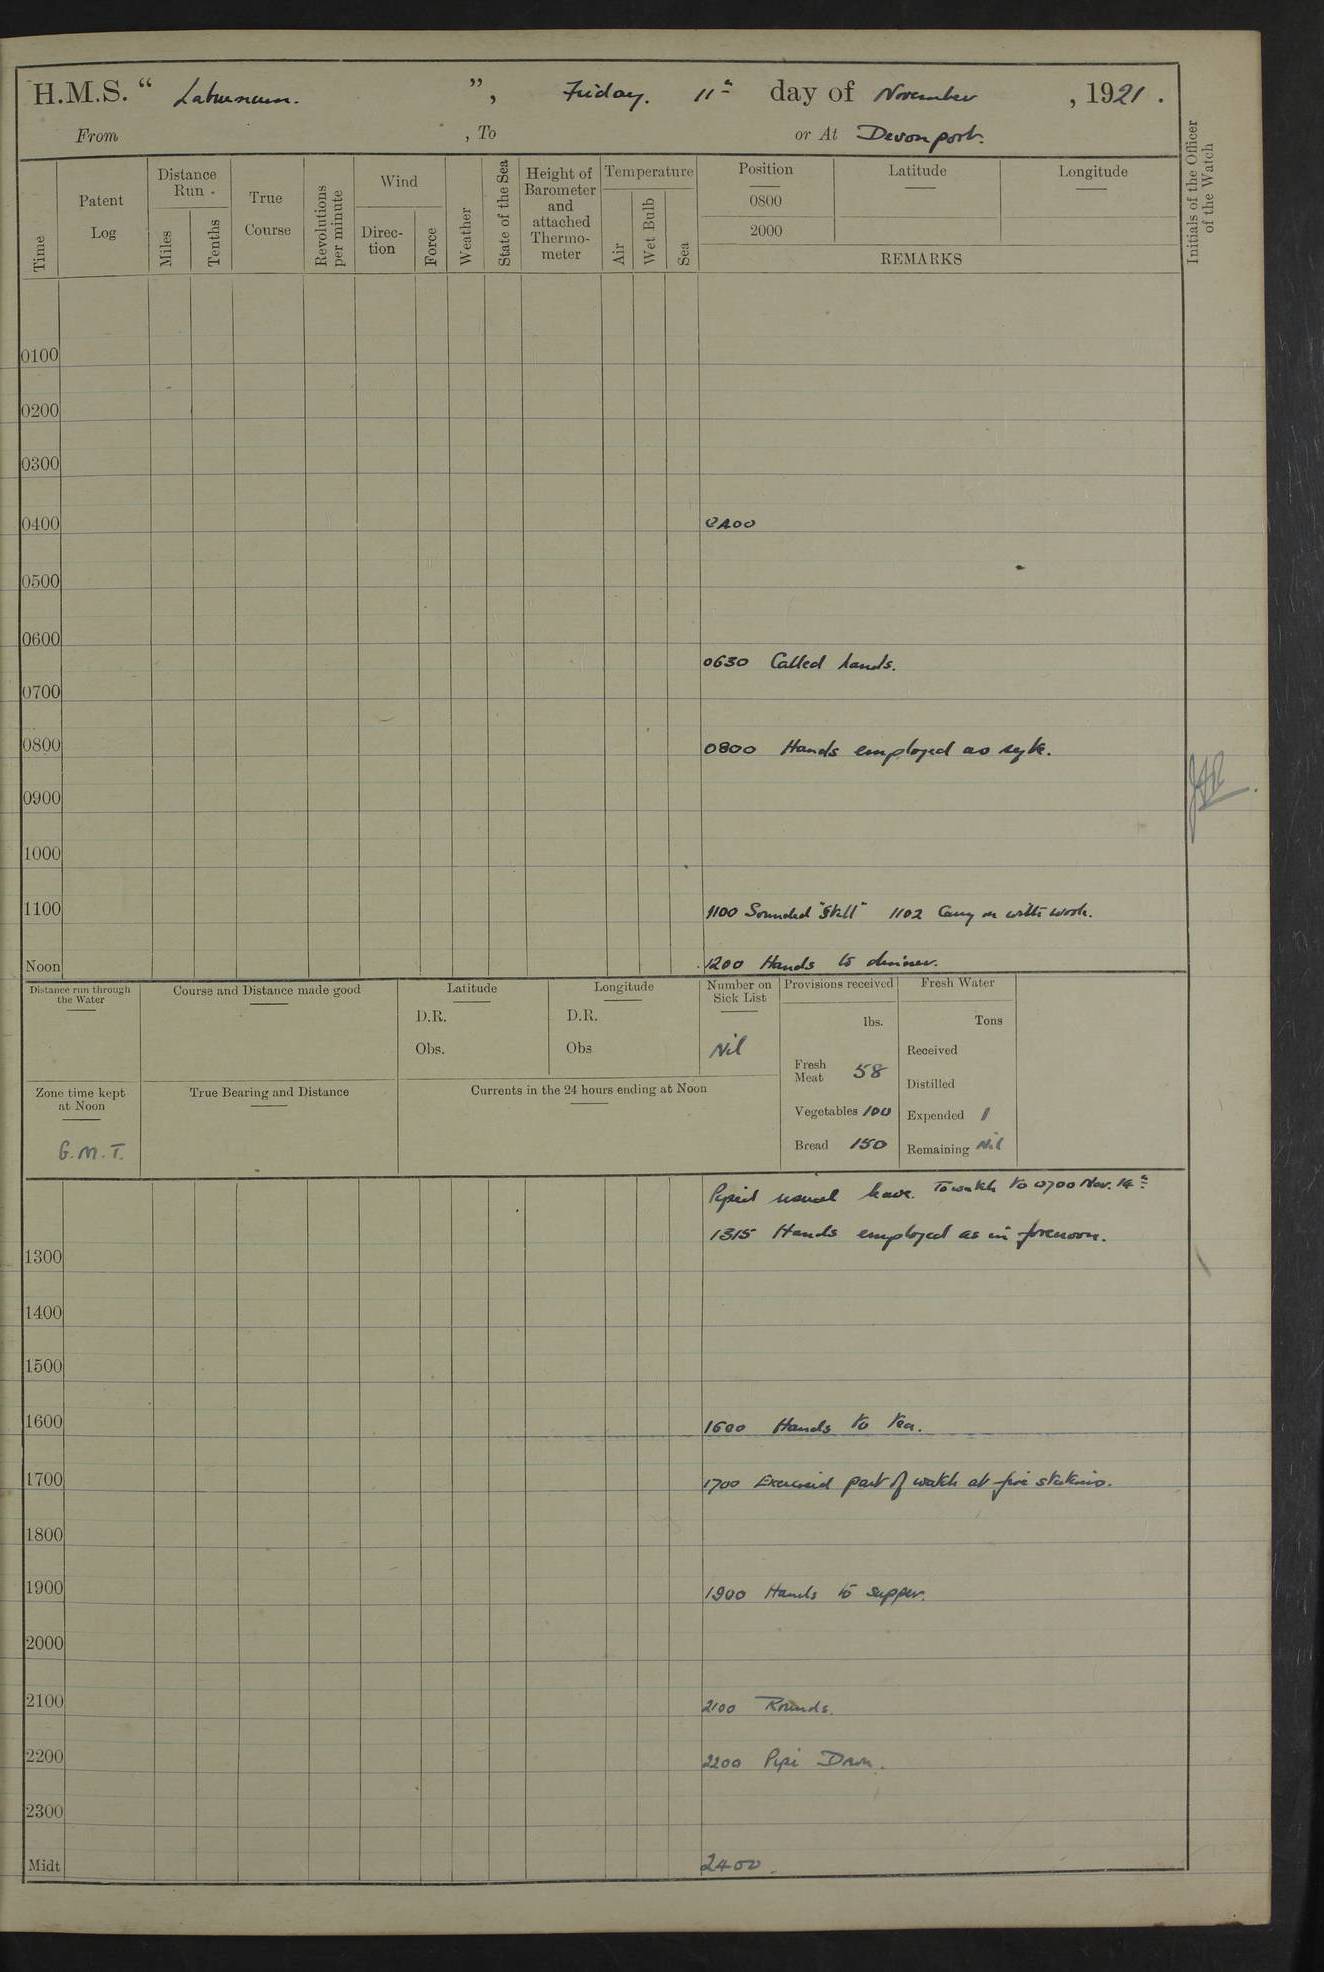 H.M.S. “ Laburnum. ”, Friday. 11th day of November , 1921 .
From , To or At Devonport.
Time
Patent Log
Distance Run
Miles
Tenths
True Course
Revolutions per minute
Wind
Direc-tion
Force
Weather
State of the Sea
Height of Barometer and attached Thermo-meter
Temperature
Air
Wet Bulb
Sea
Position
0800
2000
Latitude
Longitude
REMARKS
Initials of the Officer of the Watch
0100
0200
0300
0400 0400
0500
0600
0630 Called hands.
0700
0800 0800 Hands employed as
0900
1000
1100 1100 Sounded "Still" 1102 Carry on with work.
Noon 1200 Hands to dinner.
Distance run through the Water
Course and Distance made good
Latitude
D.R.
Obs.
Longitude
D.R.
Obs
Number on Sick List
Nil
Provisions received
lbs.
Fresh Meat 58
Vegetables 100
Bread 150
Fresh Water
Tons
Received
Distilled
Expended 1
Remaining Nil
Zone time kept at Noon
G.M.T.
True Bearing and Distance
Currents in the 24 hours ending at Noon
Piped usual leave. To watch to 0700 Nov. 14th
1315 Hands employed as in forenoon.
1300
1400
1500
1600 1600 Hands to tea.
1700 1700 Exercised part of watch at fire stations.
1800
1900 1900 Hands to supper.
2000
2100 2100 Rounds.
2200 2200 Pipe Down.
2300
Midt 2400.